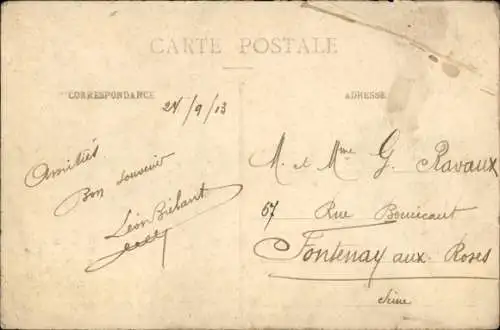 CARTE POSTALE
CORRESPONDANCE
24/9/13
Amitiés
Bon souvenir
Léon Biélant
ADRESSE
M. et Mme G. Ravaux
57 Rue Boucicaut
Fontenay aux Roses
Seine